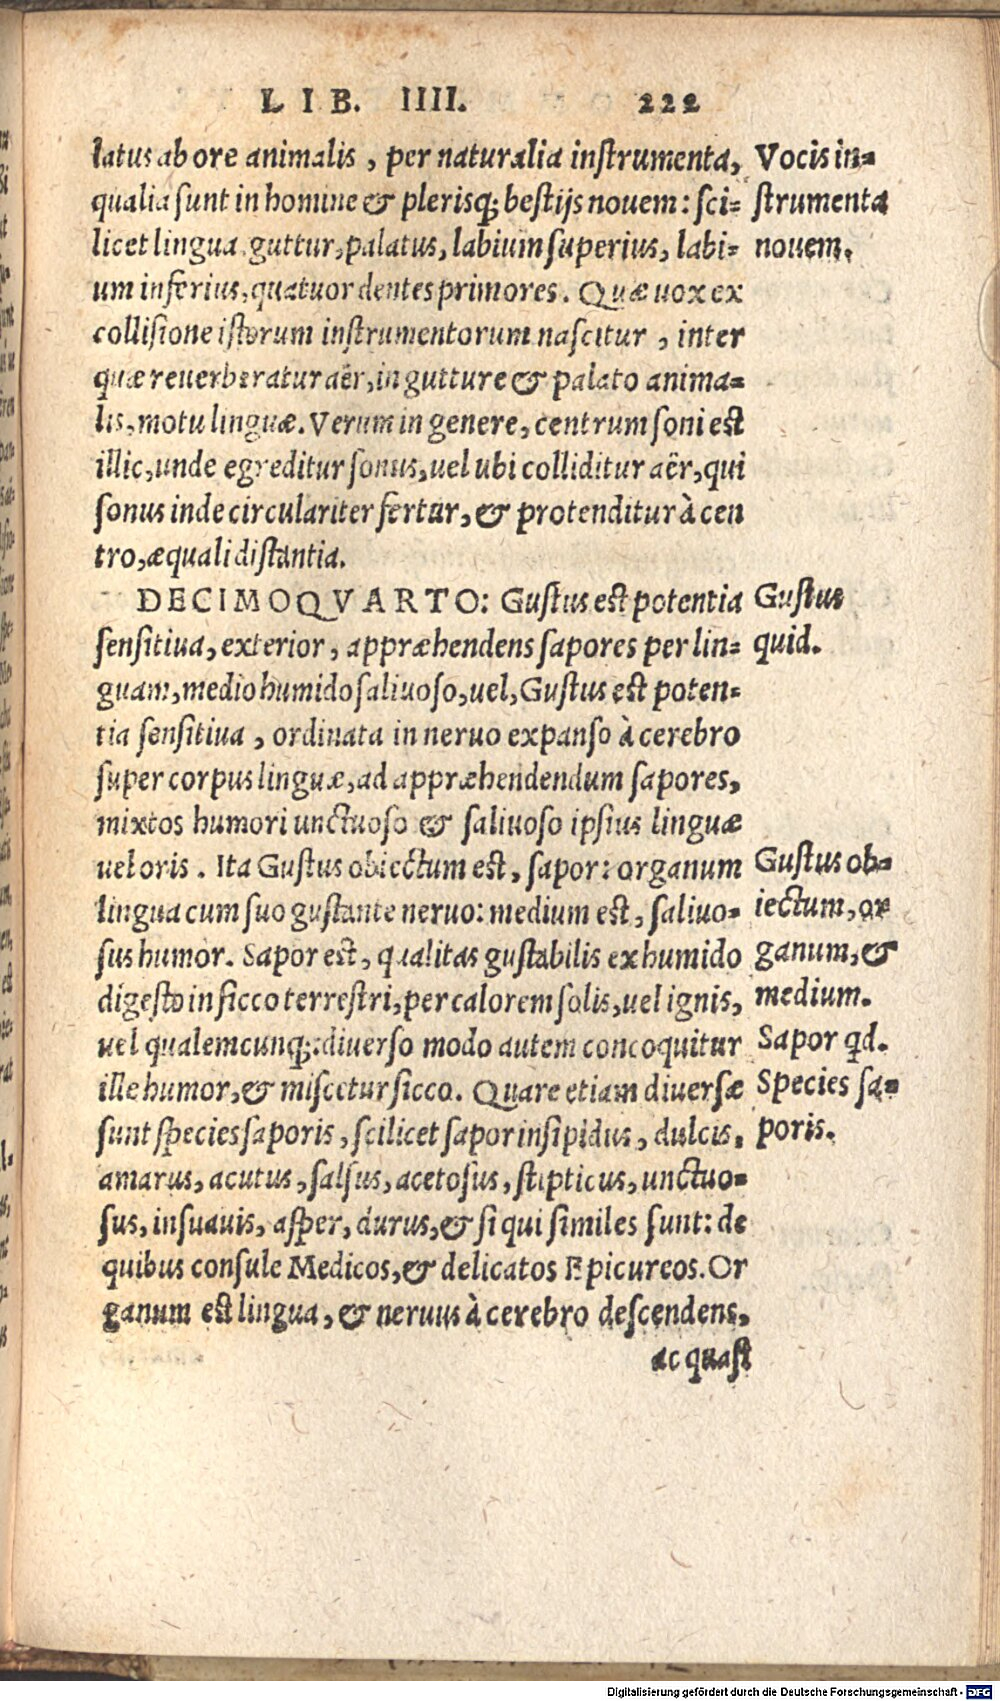 LIB. IIII. 222
latus ab ore animalis, per naturalia instrumenta,
qualia sunt in homine & plerisq; bestijs nouem: sci=
licet lingua, guttur, palatus, labium superius, labi=
um inferius, quatuor dentes primores. Quæ uox ex
collisione istorum instrumentorum nascitur, inter
quæ reuerberatur aër, in gutture & palato anima=
lis, motu linguæ. Verum in genere, centrum soni est
illic, unde egreditur sonus, uel ubi colliditur aër, qui
sonus inde circulariter fertur, & protenditur à cen
tro, æquali distantia.
DECIMOQVARTO: Gustus est potentia
sensitiua, exterior, appræhendens sapores per lin=
guam, medio humido saliuoso, uel, Gustus est poten=
tia sensitiua, ordinata in neruo expanso à cerebro
super corpus linguæ, ad appræhendendum sapores,
mixtos humori unctuoso & saliuoso ipsius linguæ
uel oris. Ita Gustus obiectum est, sapor: organum
lingua cum suo gustante neruo: medium est, saliuo=
sus humor. Sapor est, qualitas gustabilis ex humido
digesto in sicco terrestri, per calorem solis, uel ignis,
uel qualemcunq;: diuerso modo autem concoquitur
ille humor, & miscetur sicco. Quare etiam diuersæ
sunt species saporis, scilicet sapor insipidus, dulcis,
amarus, acutus, salsus, acetosus, stipticus, unctuo=
sus, insuauis, asper, durus, & si qui similes sunt: de
quibus consule Medicos, & delicatos Epicureos. Or
ganum est lingua, & neruus à cerebro descendens,
ac quasi
Vocis in=
strumenta
nouem.
Gustus
quid.
Gustus ob=
iectum, or
ganum, &
medium.
Sapor qd.
Species sa=
poris.
Digitalisierung gefördert durch die Deutsche Forschungsgemeinschaft - DFG